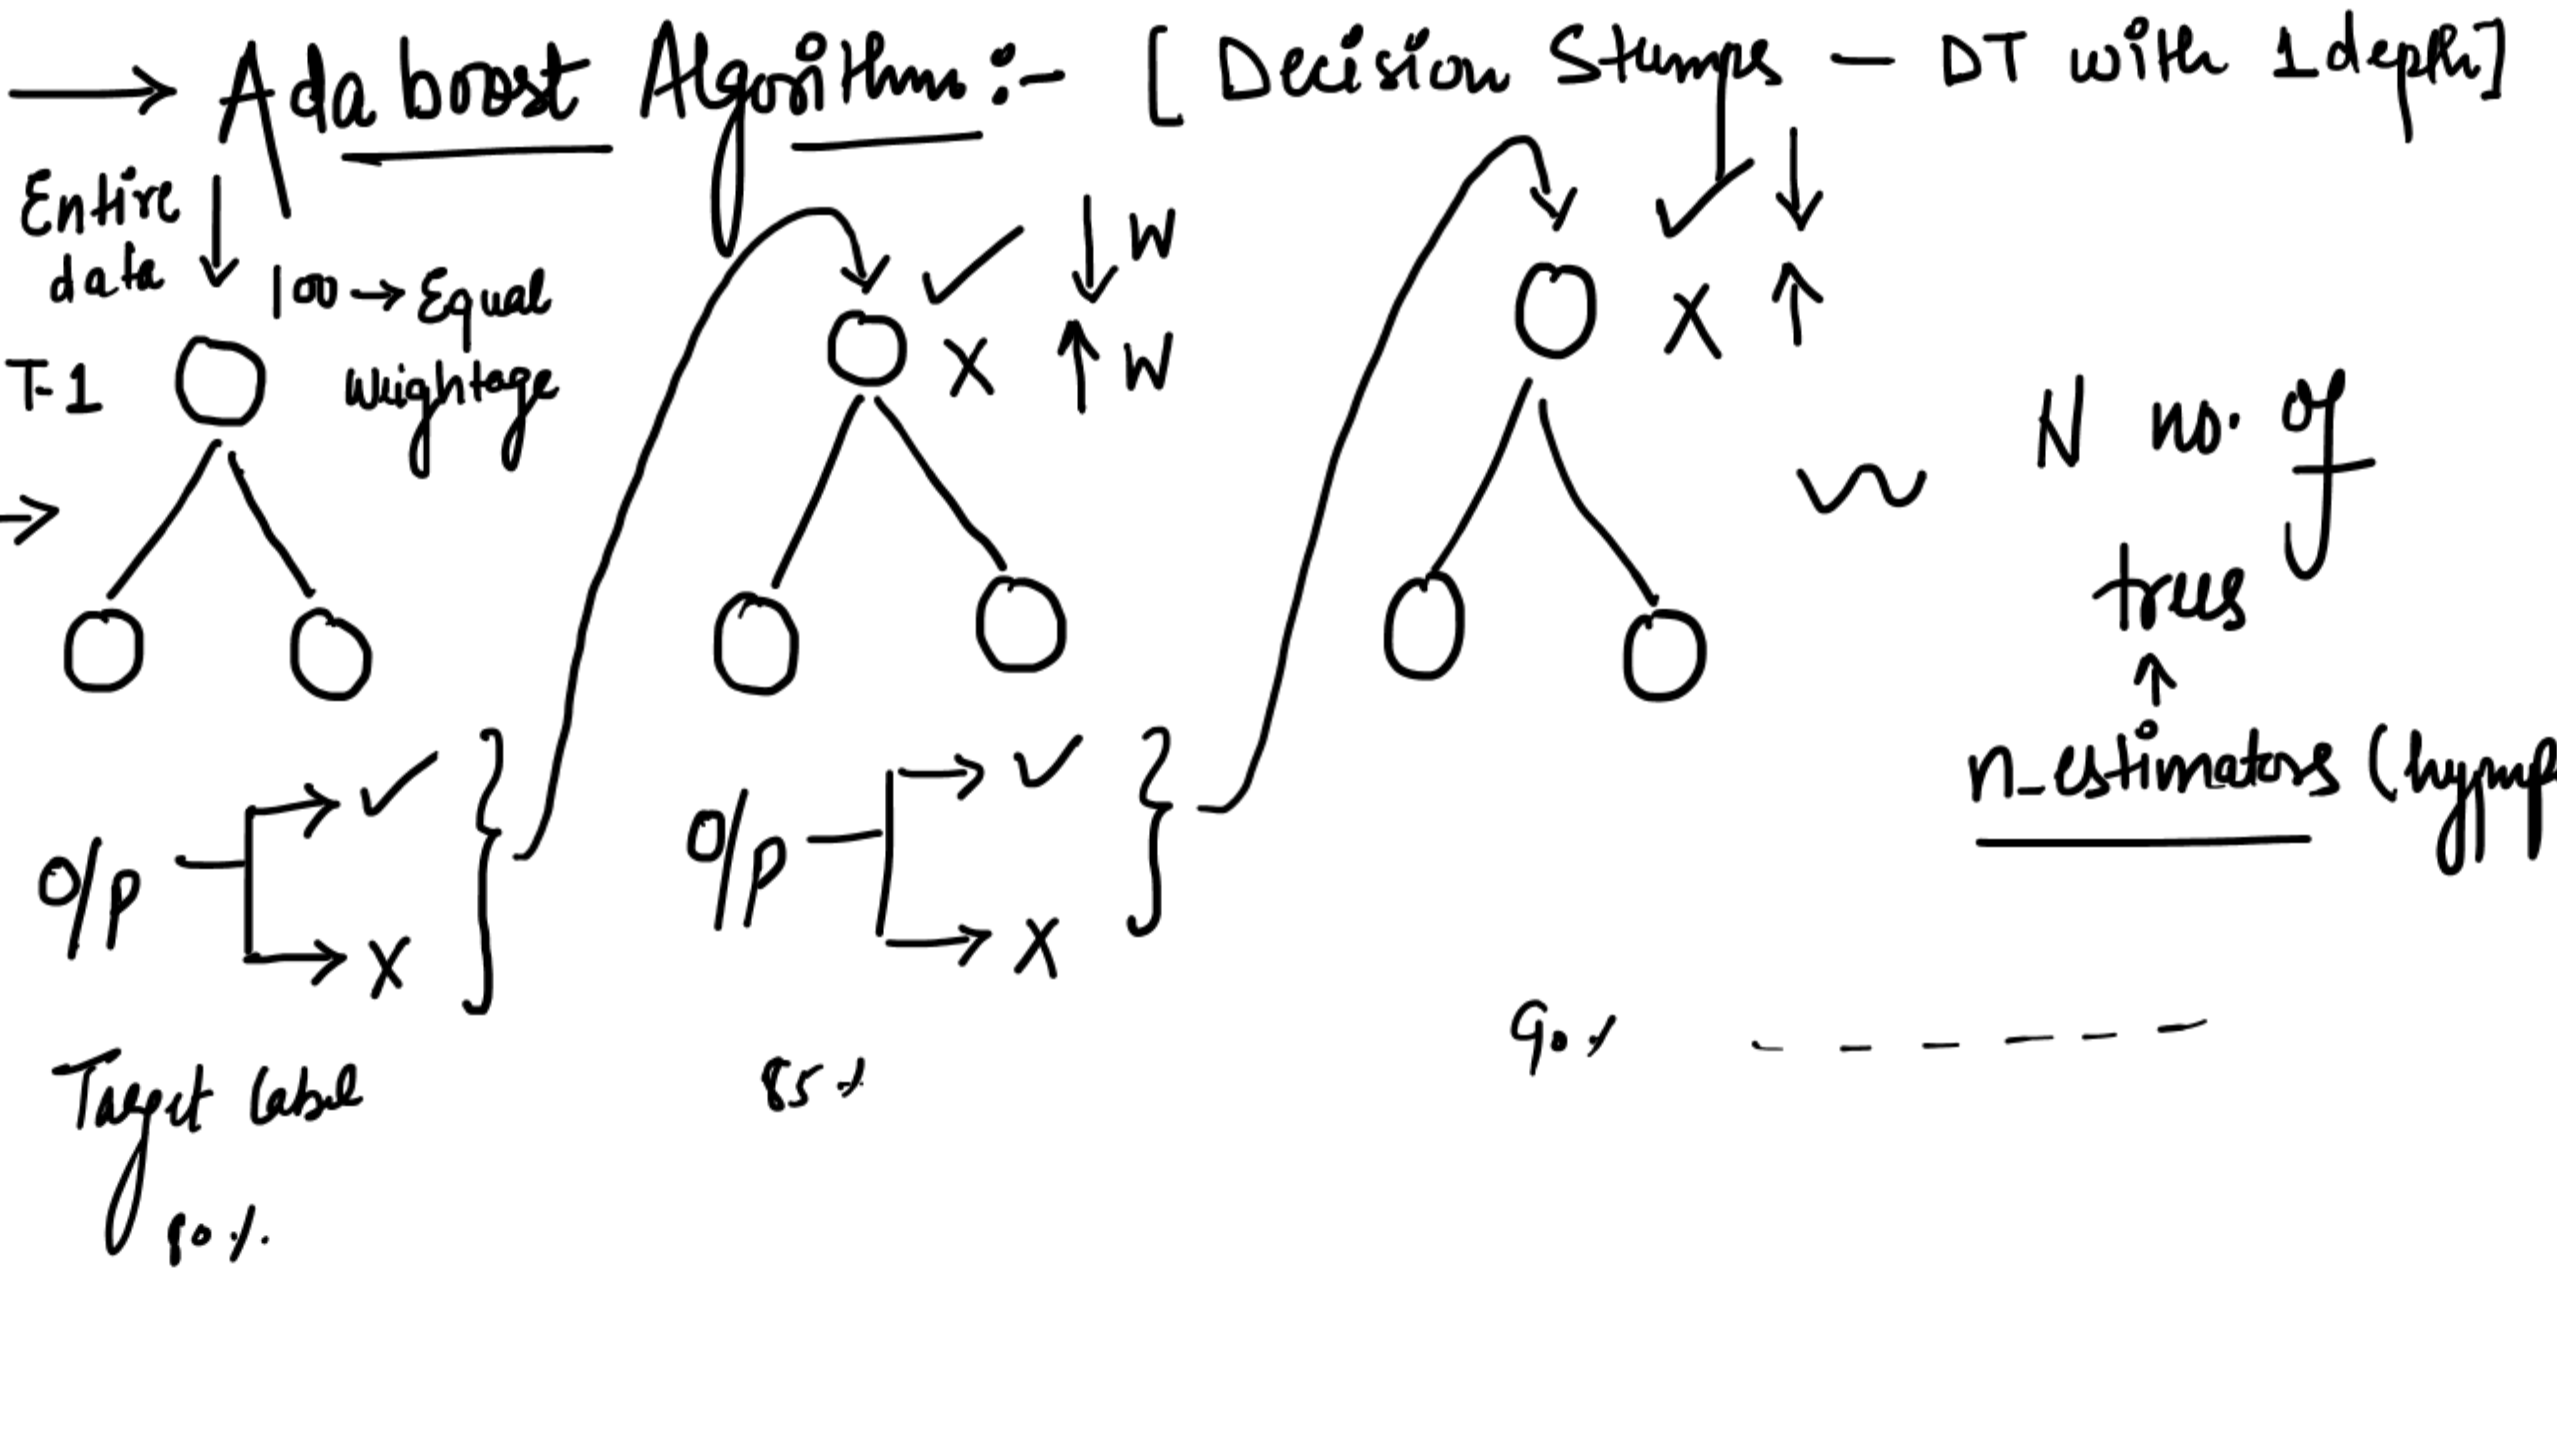 → Adaboost Algorithm :- [ Decision Stumps — DT with 1 depth ]
Entire data ↓
100 → Equal weightage
T-1
✓ ↓ W
X ↑ W
✓ ↓
X ↑
N no. of
trees
↑
n_estimators (hymp
→
O/p → ✓
→ X
O/p → ✓
→ X
Target label
80 %.
85 %
90 %